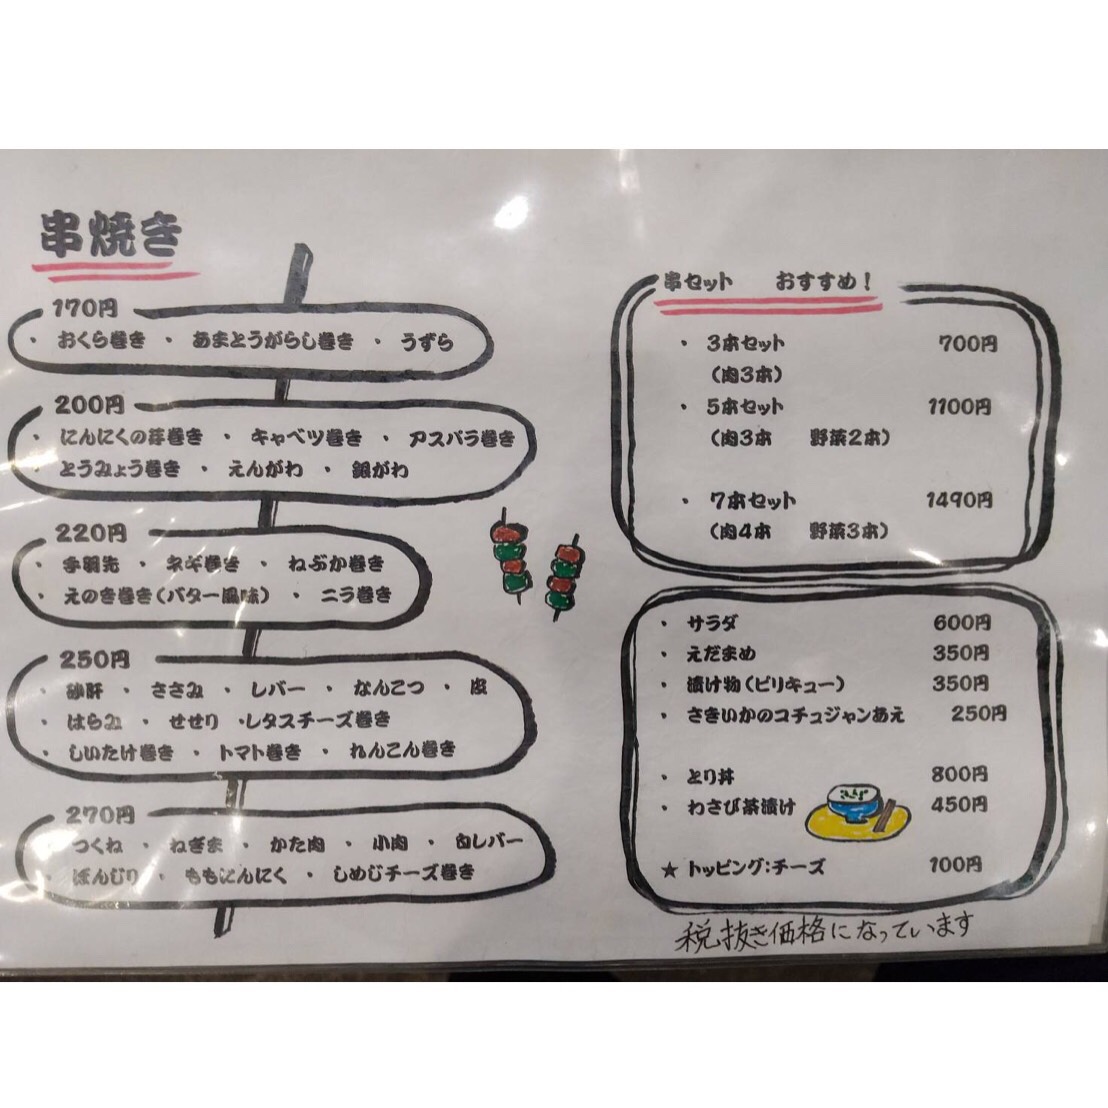 串焼き
170円
・ おくら巻き ・ あまとうがらし巻き ・ うずら
200円
・ にんにくの芽巻き ・ キャベツ巻き ・ アスパラ巻き
・ とうみょう巻き ・ えんがわ ・ 銀がわ
220円
・ 手羽先 ・ ネギ巻き ・ ねぶか巻き
・ えのき巻き(バター風味) ・ ニラ巻き
250円
・ 砂肝 ・ ささみ ・ レバー ・ なんこつ ・ 皮
・ はらみ ・ せせり ・レタスチーズ巻き
・ しいたけ巻き ・ トマト巻き ・ れんこん巻き
270円
・ つくね ・ ねぎま ・ かた肉 ・ 小肉 ・ 白レバー
・ ぼんじり ・ ももにんにく ・ しめじチーズ巻き
串セット おすすめ!
・ 3本セット 700円
(肉3本)
・ 5本セット 1100円
(肉3本 野菜2本)
・ 7本セット 1490円
(肉4本 野菜3本)
・ サラダ 600円
・ えだまめ 350円
・ 漬け物(ピリキュー) 350円
・ さきいかのコチュジャンあえ 250円
・ とり丼 800円
・ わさび茶漬け 450円
★ トッピング:チーズ 100円
税抜き価格になっています